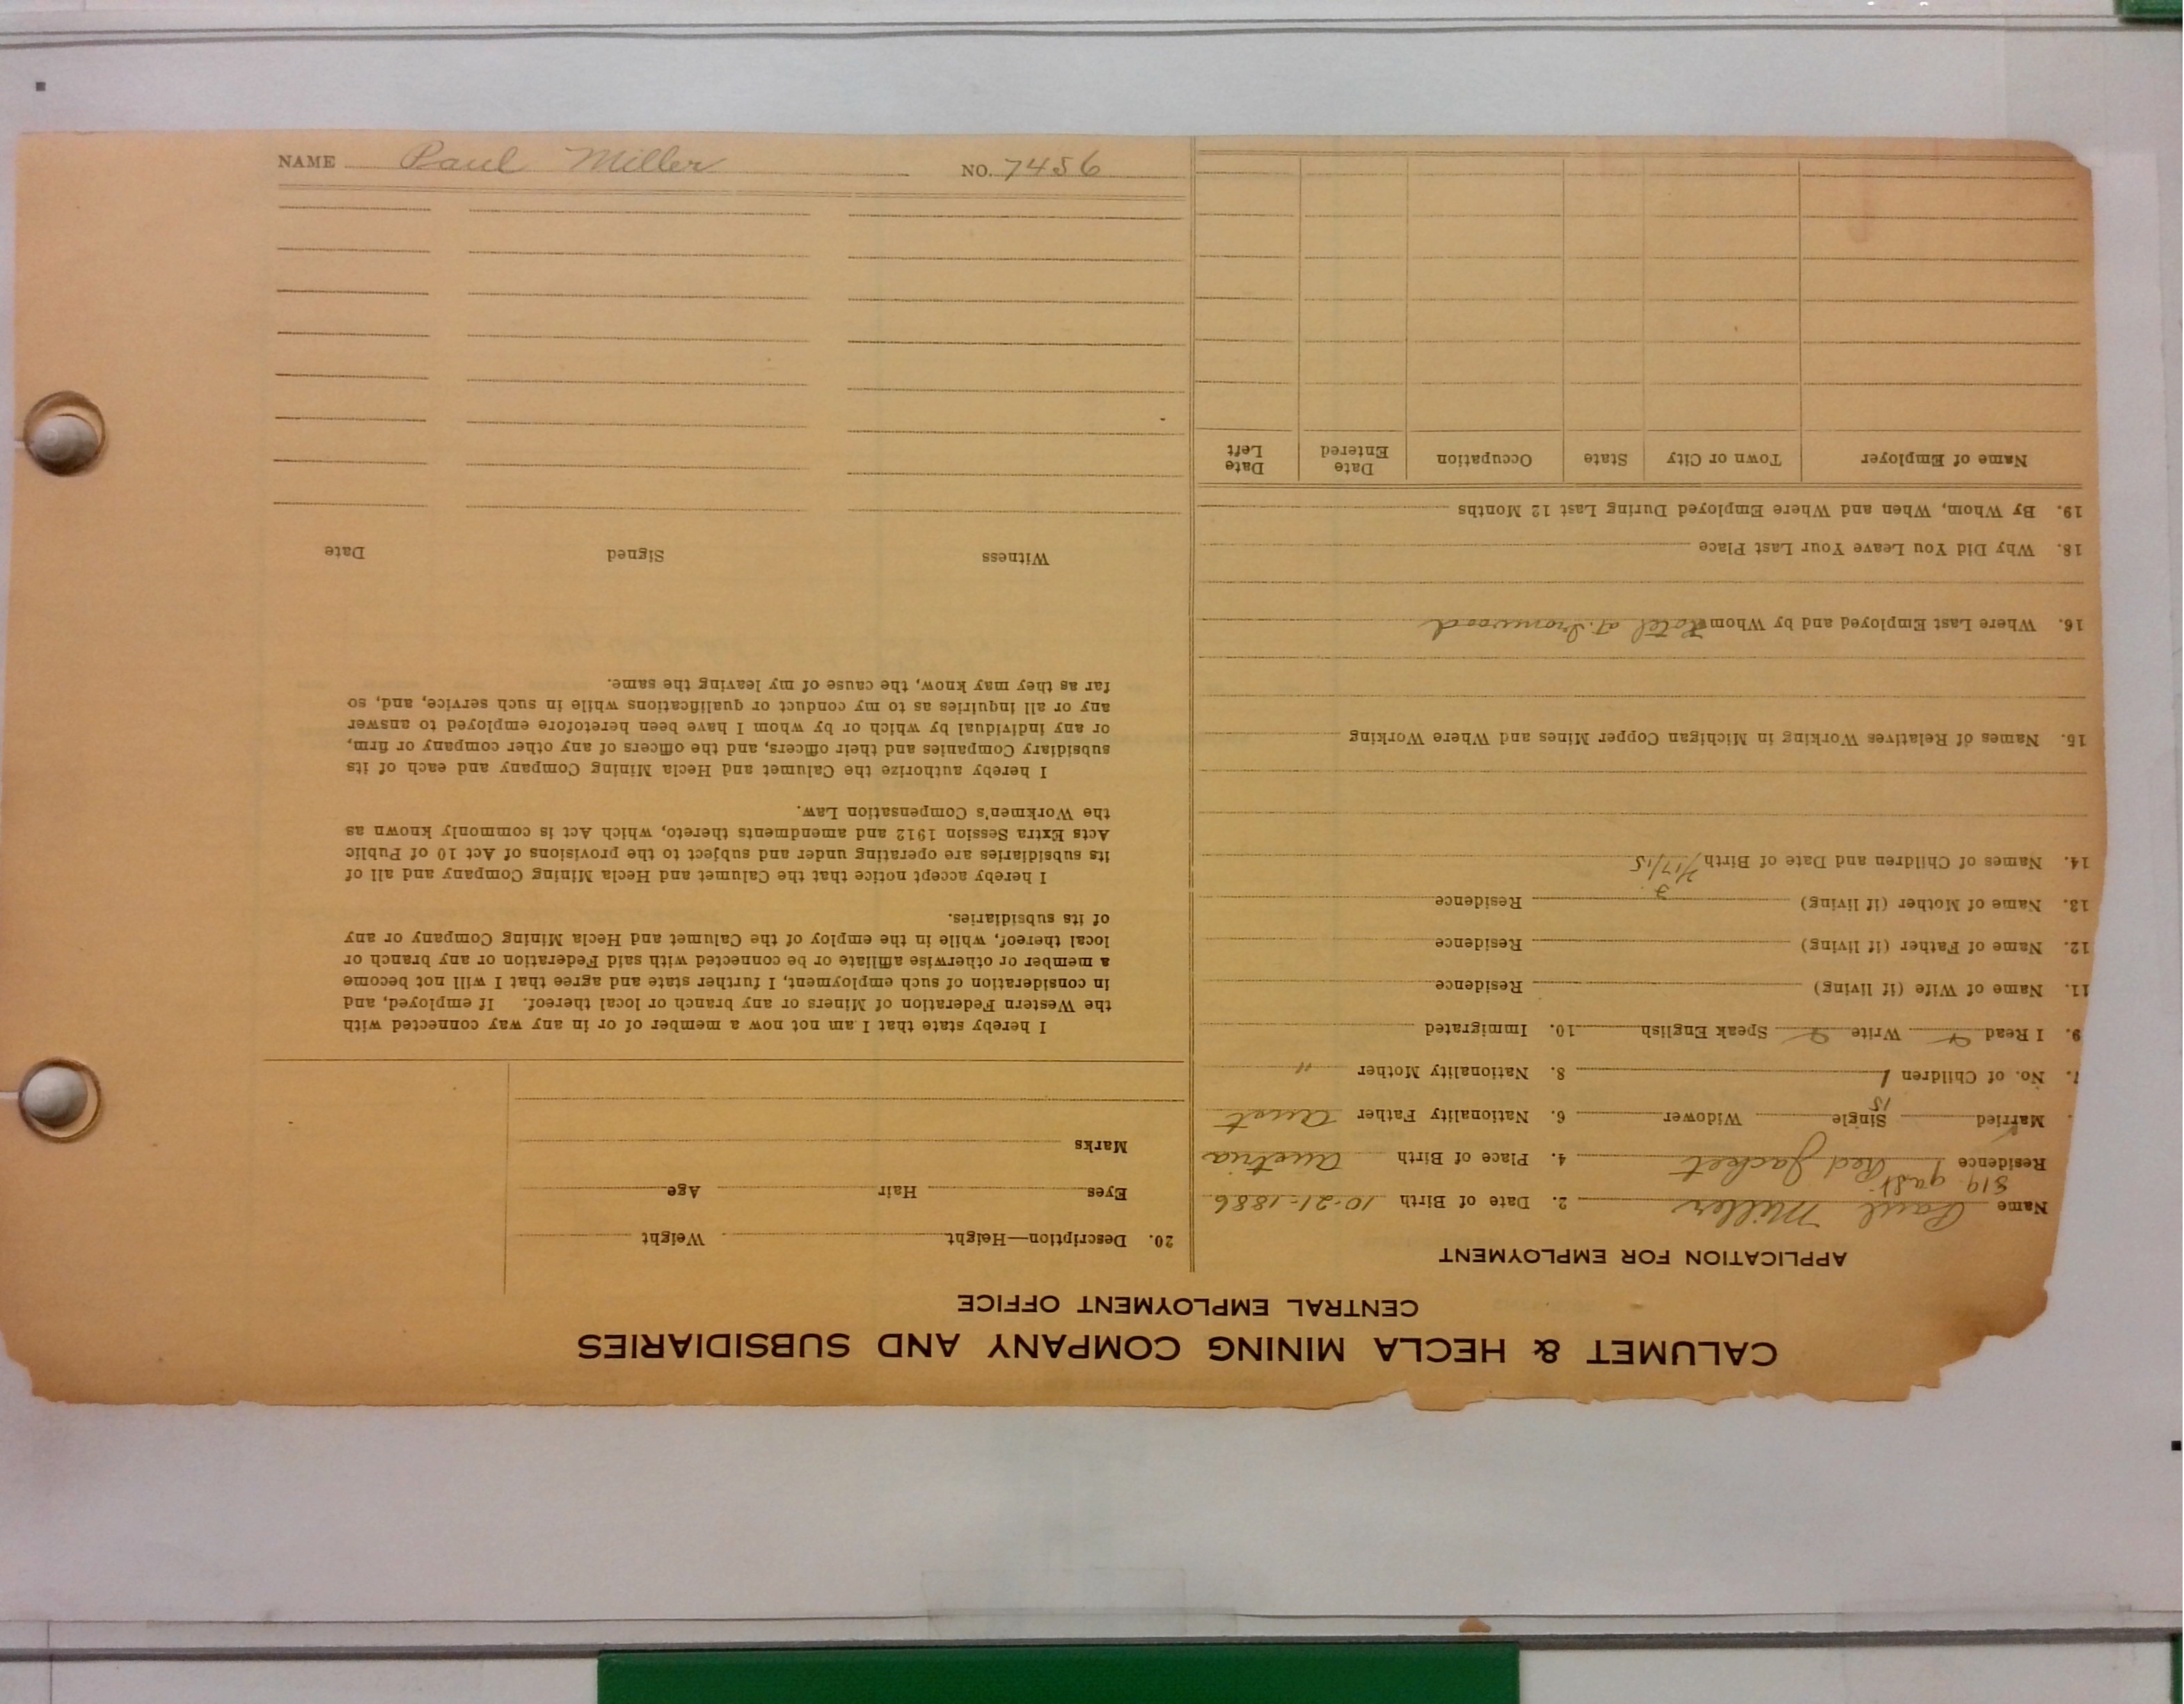 CALUMET & HECLA MINING COMPANY AND SUBSIDIARIES
CENTRAL EMPLOYMENT OFFICE
APPLICATION FOR EMPLOYMENT
Name Paul Miller 2. Date of Birth 10-21-1886
819
Residence Red Jacket 4. Place of Birth Austria
Married Single Widower 6. Nationality Father Aust
15
7. No. of Children 1 8. Nationality Mother "
9. I Read Write Speak English 10. Immigrated
11. Name of Wife (if living) Residence
12. Name of Father (if living) Residence
13. Name of Mother (if living) Residence
14. Names of Children and Date of Birth 7/17/15
15. Names of Relatives Working in Michigan Copper Mines and Where Working
16. Where Last Employed and by Whom Hotel at Ironwood
18. Why Did You Leave Your Last Place
19. By Whom, When and Where Employed During Last 12 Months
Name of Employer Town or City State Occupation Date Entered Date Left
20. Description—Height Weight
Eyes Hair Age
Marks
I hereby state that I am not now a member of or in any way connected with
the Western Federation of Miners or any branch or local thereof. If employed, and
in consideration of such employment, I further state and agree that I will not become
a member or otherwise affiliate or be connected with said Federation or any branch or
local thereof, while in the employ of the Calumet and Hecla Mining Company or any
of its subsidiaries.
I hereby accept notice that the Calumet and Hecla Mining Company and all of
its subsidiaries are operating under and subject to the provisions of Act 10 of Public
Acts Extra Session 1912 and amendments thereto, which Act is commonly known as
the Workmen's Compensation Law.
I hereby authorize the Calumet and Hecla Mining Company and each of its
subsidiary Companies and their officers, and the officers of any other company or firm,
or any individual by which or by whom I have been heretofore employed to answer
any or all inquiries as to my conduct or qualifications while in such service, and, so
far as they may know, the cause of my leaving the same.
Witness Signed Date
NAME Paul Miller NO. 7456